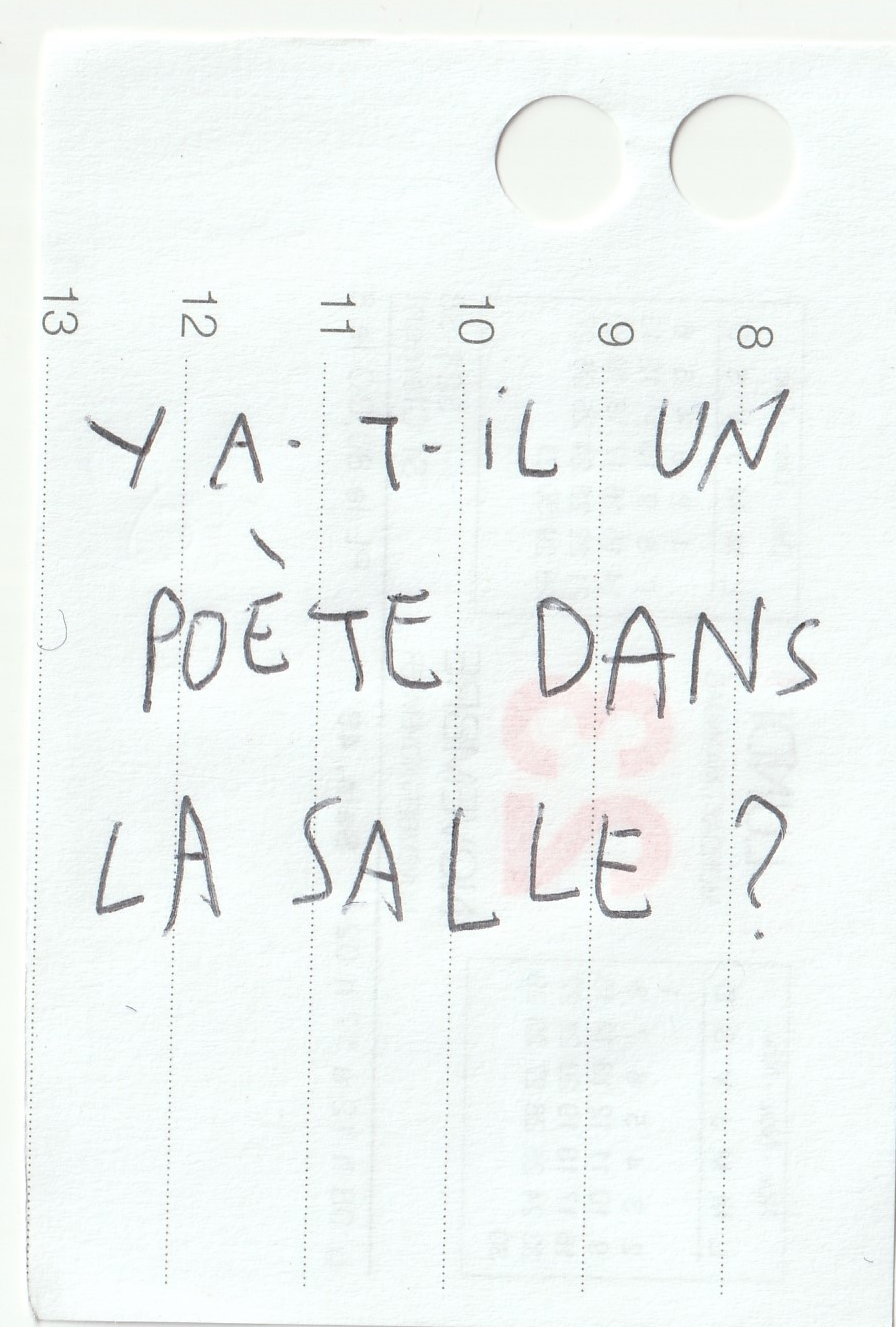 13
12
11
10
9
8
Y A-T-iL UN
POÈTE DANS
LA SALLE ?